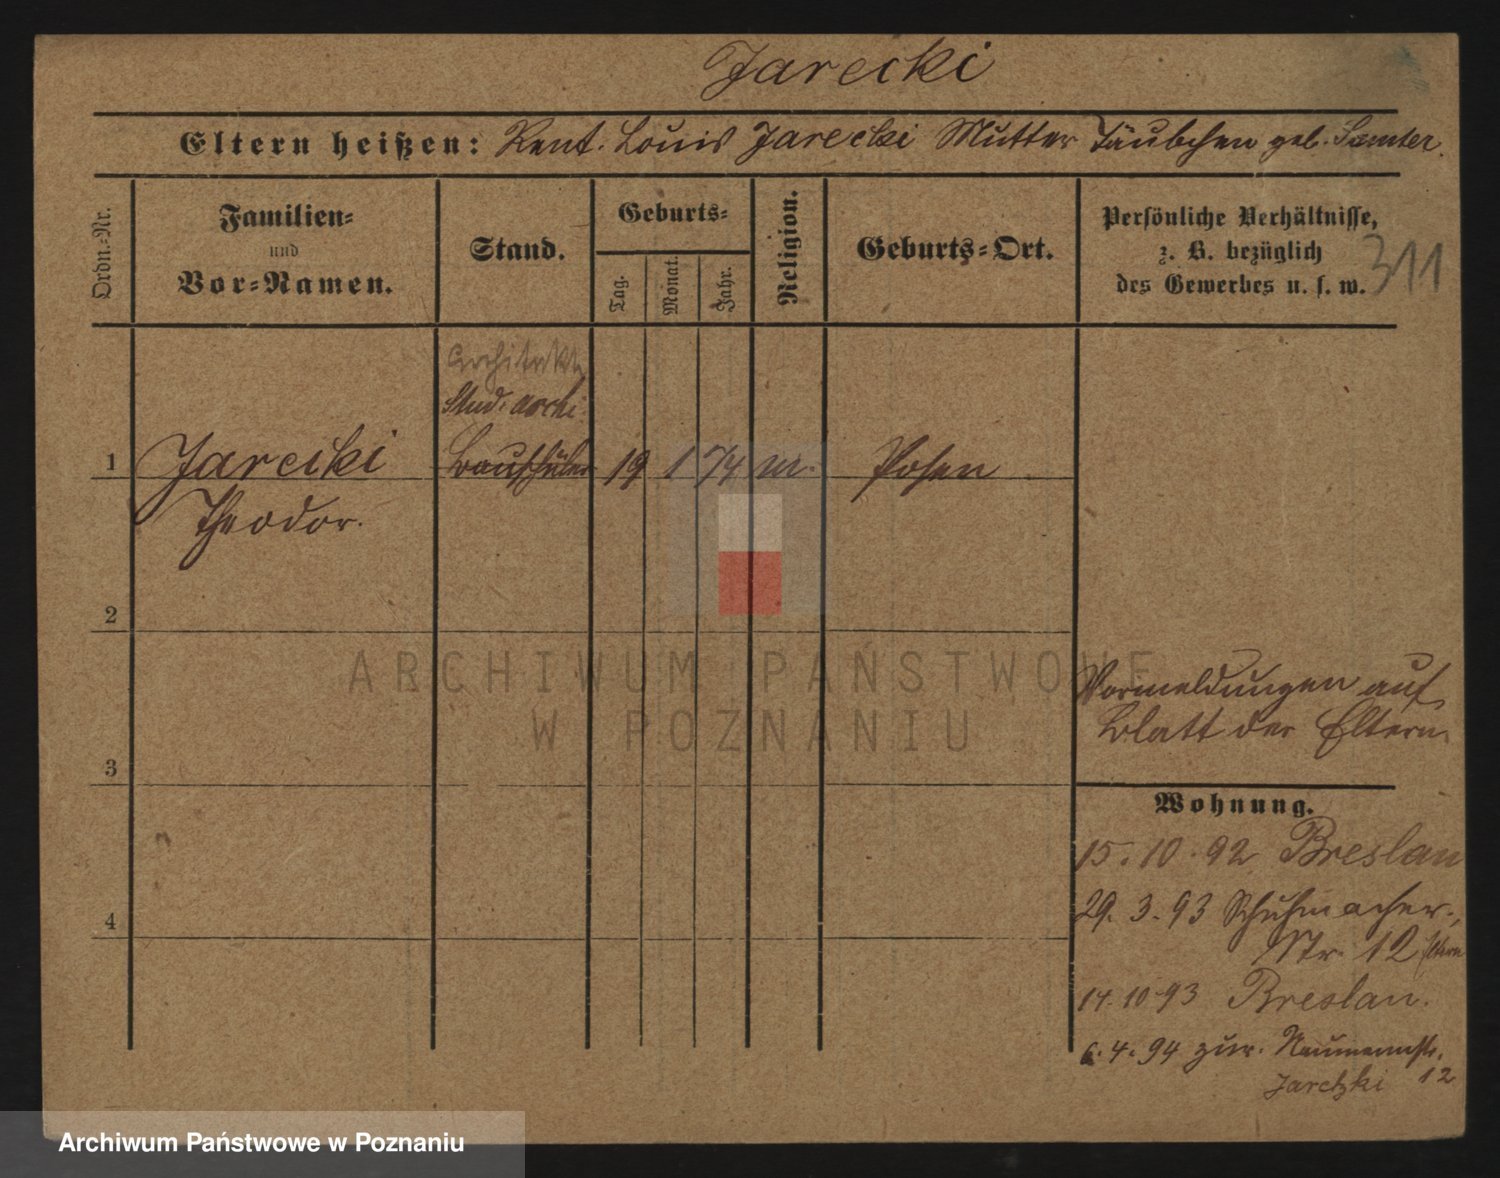 Jarecki
Eltern heißen: Rent. Louis Jarecki Mutter Täubchen geb. Samter.
Ordn.-Nr.
Familien-
und
Vor-Namen.
Stand.
Geburts-
Tag.
Monat.
Jahr.
Religion.
Geburts-Ort.
Persönliche Verhältnisse,
z. B. bezüglich
des Gewerbes u. s. w.
311
Architekt
Stud. archi
1 Jarecki Bauschüler 19 1 74 m. Posen
Theodor.
2
3
4
Vormeldungen auf
Blatt der Eltern
Wohnung.
15. 10. 92 Breslau
29. 3. 93 Schuhmacher-
Str. 12 Eltern
14. 10 93 Breslau.
6. 4. 94 zur. Naumannstr.
Jaretzki 12
ARCHIWUM PAŃSTWOWE
W POZNANIU
Archiwum Państwowe w Poznaniu